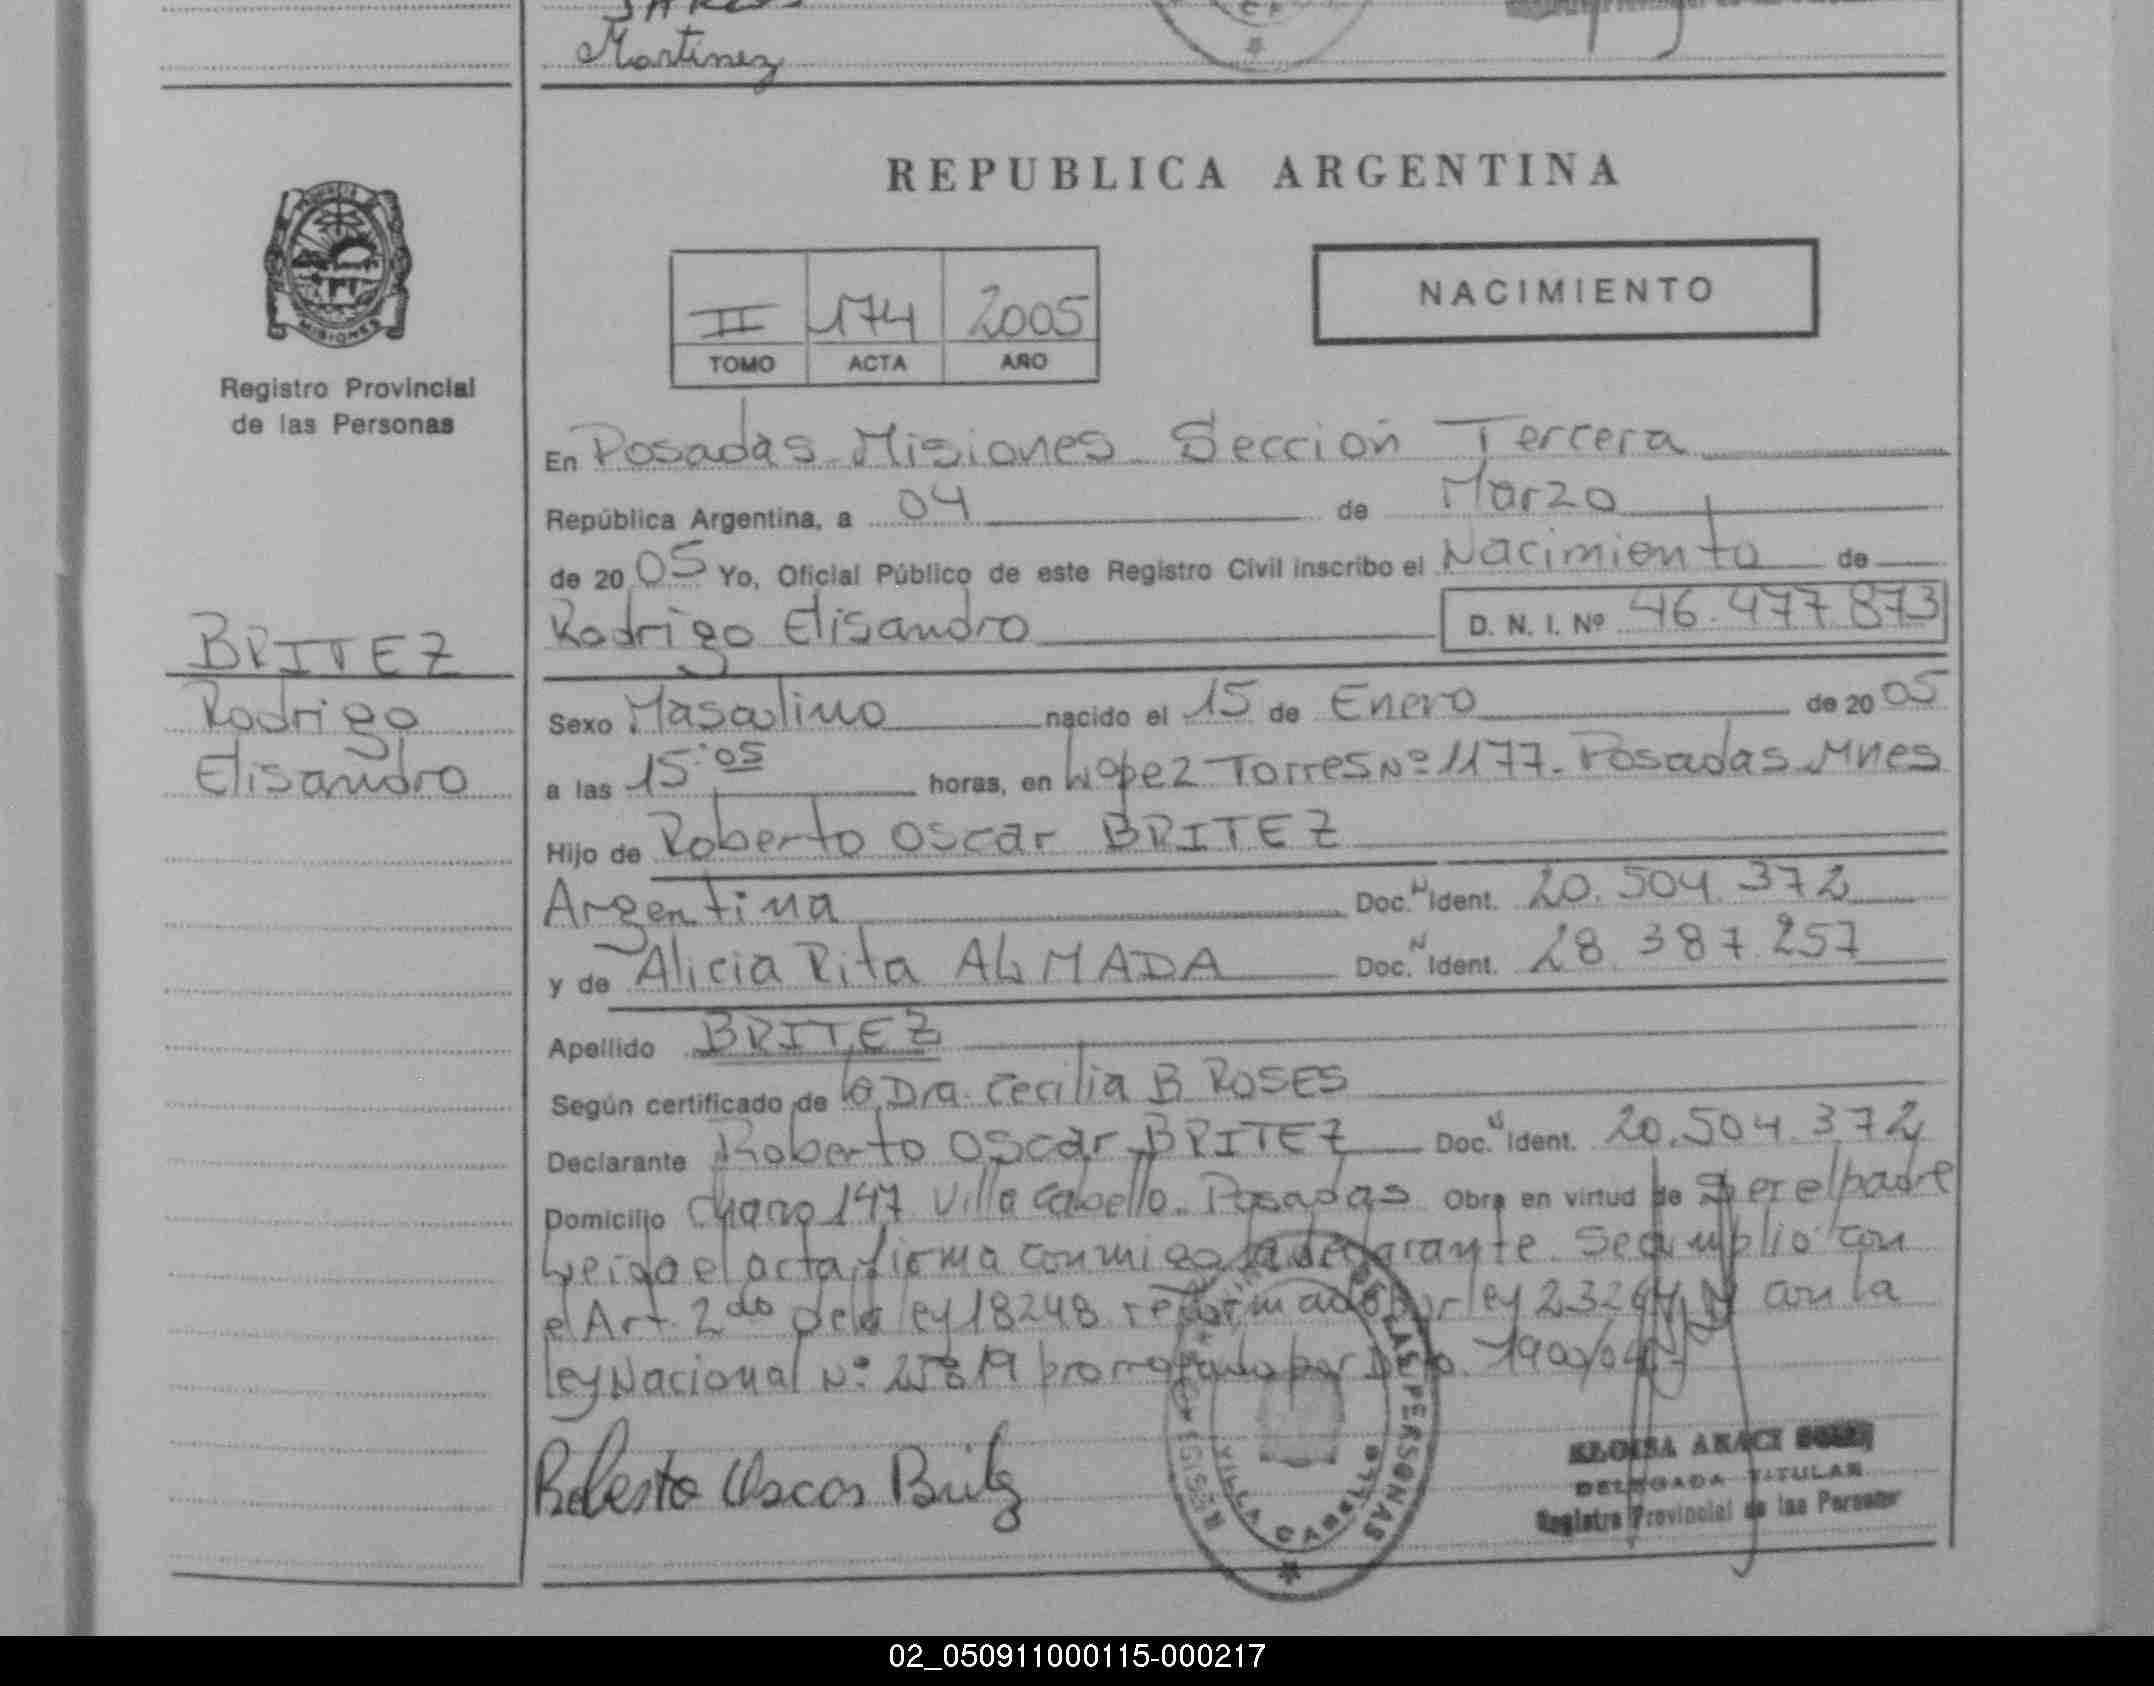 Martinez
REPUBLICA ARGENTINA
MISIONES
Registro Provincial
de las Personas
II 174 2005
TOMO ACTA AÑO
NACIMIENTO
En Posadas Misiones Sección Tercera
República Argentina, a 04 de Marzo
de 2005 Yo, Oficial Público de este Registro Civil inscribo el Nacimiento de
Rodrigo Elisandro D. N. I. Nº 46.477.873
BRITEZ
Rodrigo
Elisandro
Sexo Masculino nacido el 15 de Enero de 2005
a las 15:05 horas, en López Torres Nº 1177. Posadas Mnes
Hijo de Roberto Oscar BRITEZ
Argentina Doc. N Ident. 20.504.372
y de Alicia Rita ALMADA Doc. N Ident. 28.387.257
Apellido BRITEZ
Según certificado de la Dra. Cecilia B ROSES
Declarante Roberto Oscar BRITEZ Doc. N Ident. 20.504.372
Domicilio 147 Villa Cabello. Posadas Obra en virtud de Ser el padre
Leida el acta, firma conmigo declarante. Se cumplió con
el Art. 2do de la ley 18248 reformado por ley y con la
ley Nacional Nº 25819 promogado por 
Roberto Oscar Britez
DE LAS PERSONAS
VILLA CABELLO
ELOISA ARACI
DELEGADA TITULAR
Registro Provincial de las Personas
02_050911000115-000217